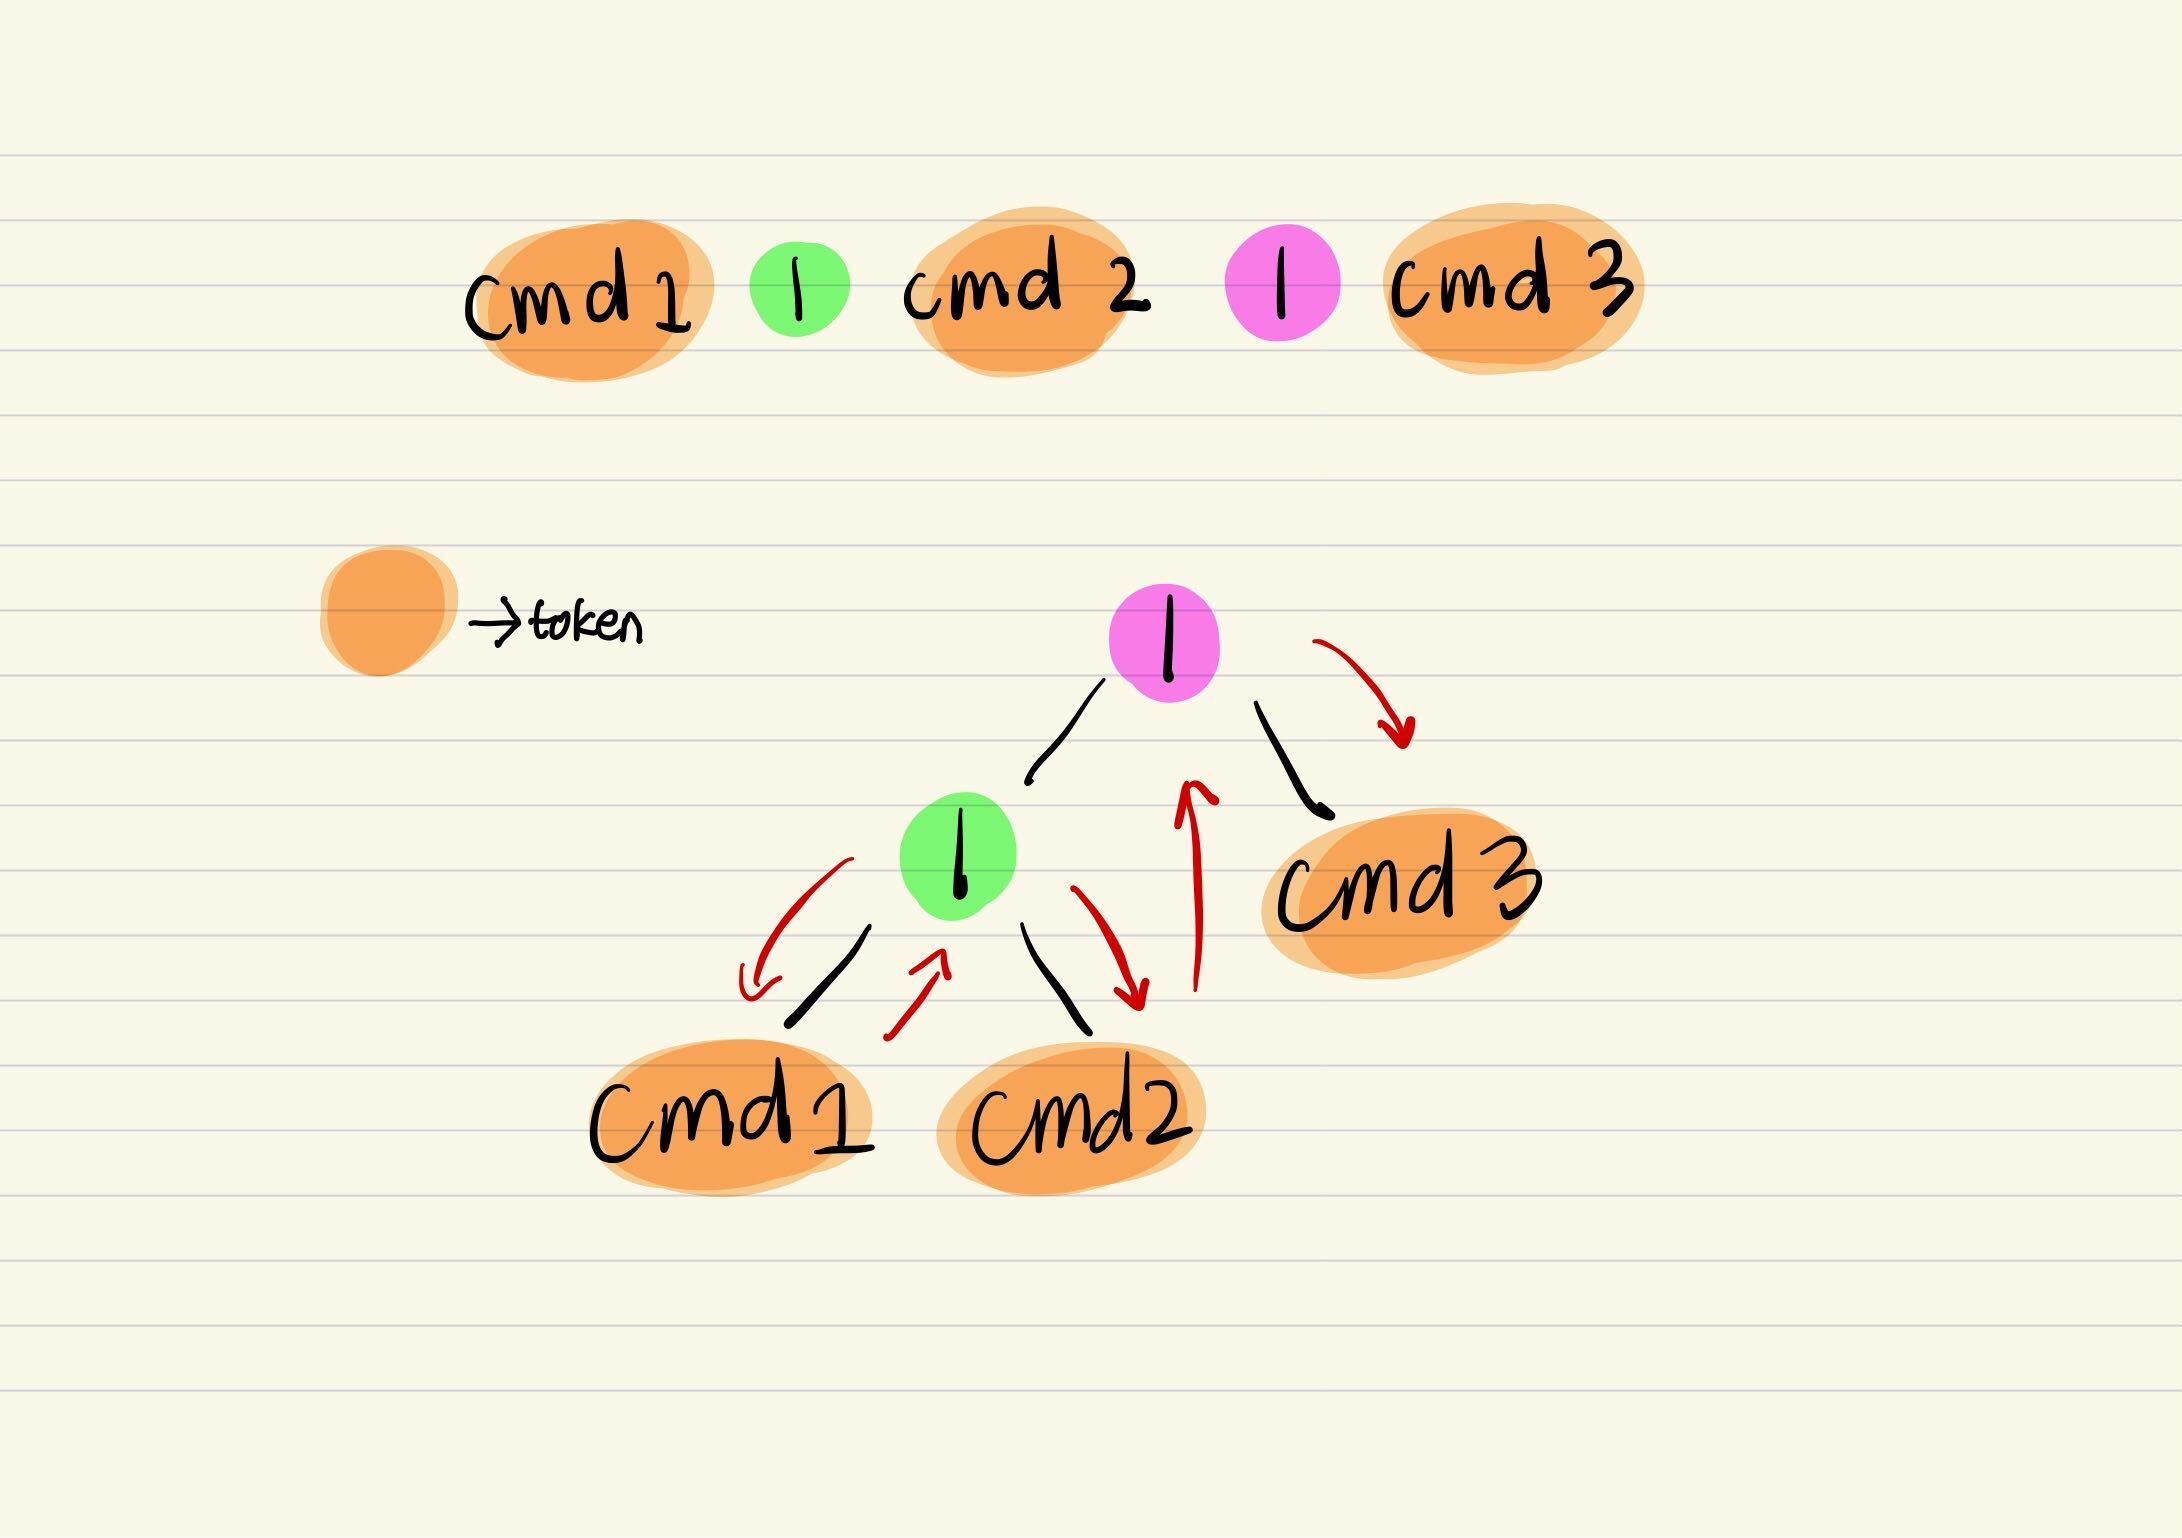 cmd 1 | cmd 2 | cmd 3
→ token
|
|
cmd 3
cmd 1 cmd 2